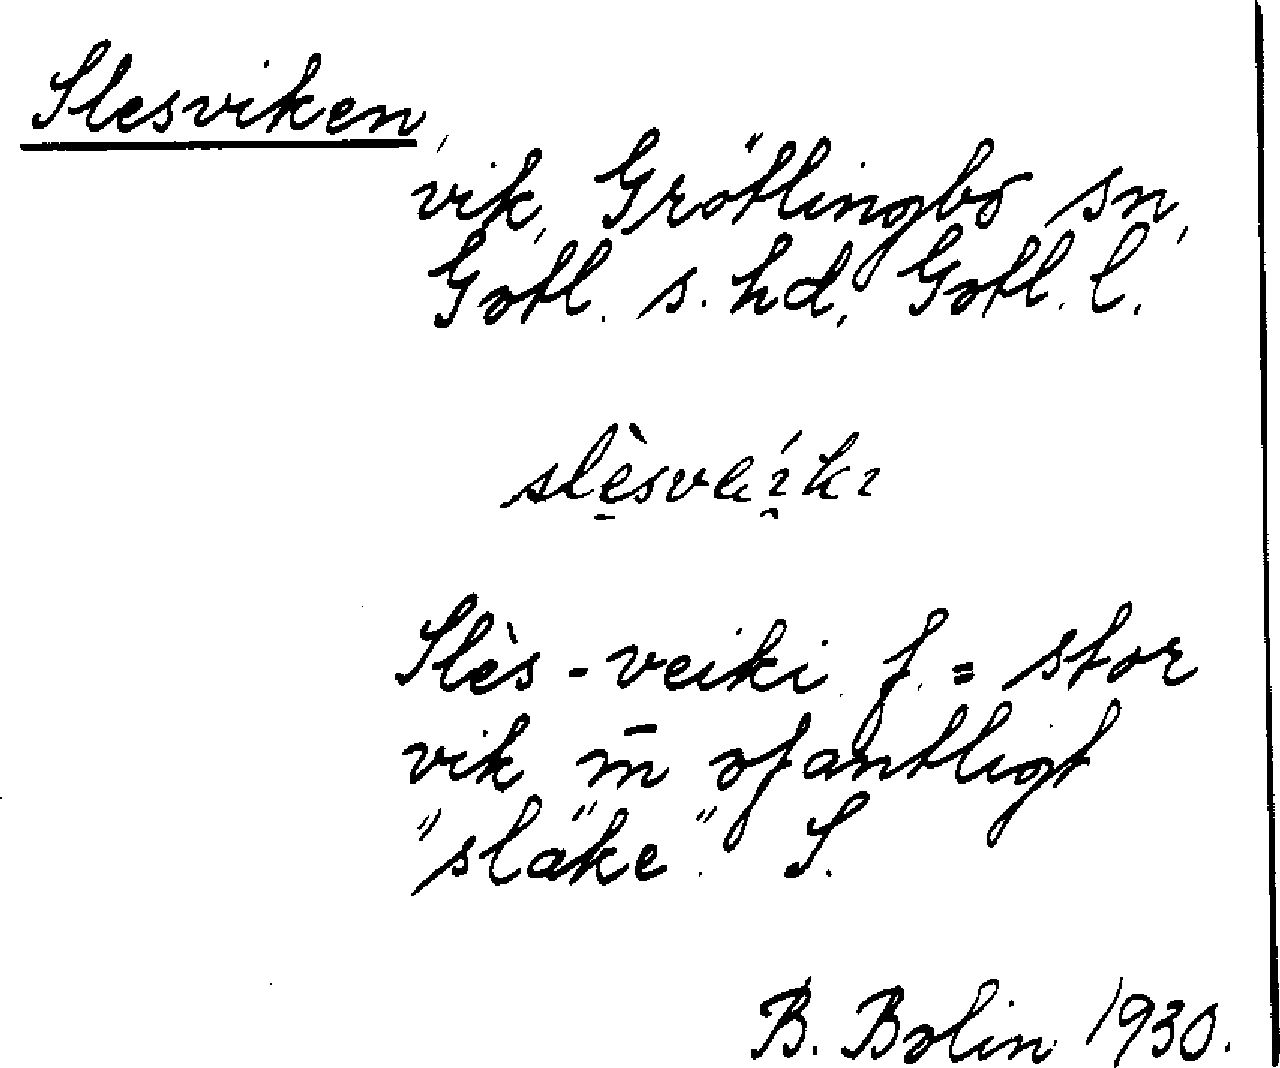 Slesviken,
vik, Grötlingbo sn,
Gotl. s. hd, Gotl. l.
Slès - veiki f. = stor
vik m̄ ofantligt
"släke". S.
B. Bolin 1930.